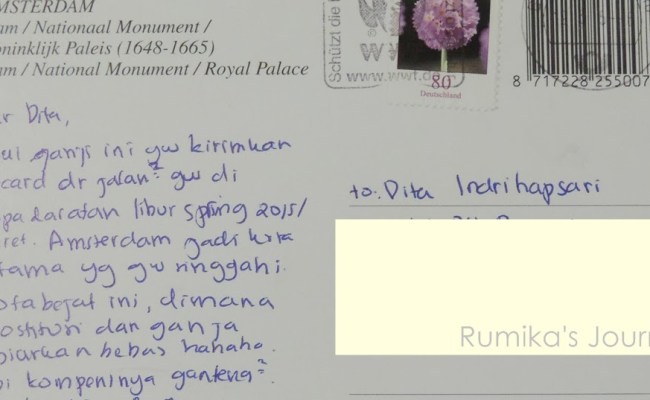 AMSTERDAM
Dam / Nationaal Monument /
Koninklijk Paleis (1648-1665)
Dam / National Monument / Royal Palace
Schützt die
WWF
www.wwf.de
80
Deutschland
8 717228 255007
Dita,
ganji ini gw kirimkan
card dr jalan² gw di
daratan libur spring 2015/
ret. Amsterdam jadi kota
tama yg gw singgahi.
bejat ini, dimana
dan ganja
biarkan bebas hahaha.
kompeninya ganteng².
to: Dita Indrihapsari
Rumika's Journ